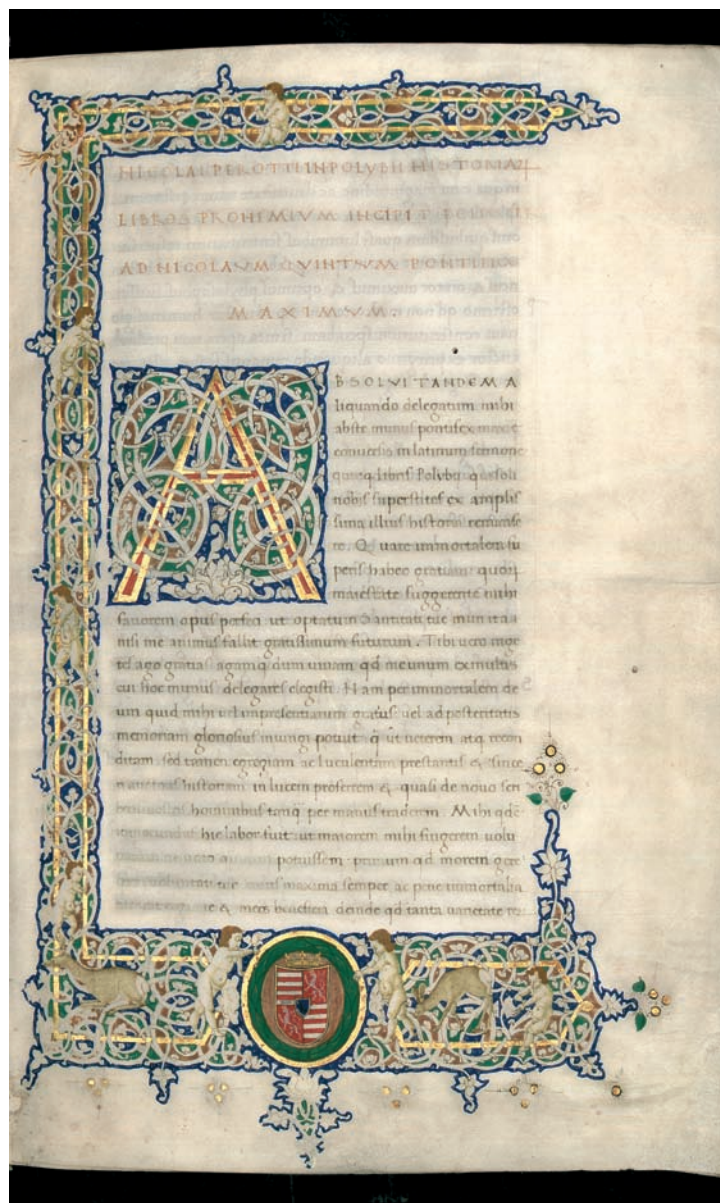 NICOLAI PEROTTI IN POLYBII HISTORIAR
LIBROS PROHIMIVM INCIPIT
AD NICOLAVM QVINTVM PONTIFICE
MAXIMVM.
ABSOLVI TANDEM A
liquando delegatum mihi
abste munus pontifex
conuersis in latinum sermone
libris Polybii qui soli
nobis superstites ex amplis
sima illius historia remanse
re. Quare immortalem su
peris habeo gratiam quorum
maiestate suggerente mihi
fauorem opus perfeci ut optatum Sanctitati tue mun ita a
nisi me animus fallit gratissimum futurum. Tibi uero inge
tes ago gratias agamq dum uiuam qd me unum ex multis
cui hoc munus delegares elegisti. Nam per immortalem de
um quid mihi uel inpresentiarum gratius uel ad posteritatis
memoriam gloriosius iniungi potuit q ut ueterem atq recon
ditam. sed tamen egregiam ac luculentam prestantis & since
historiam in lucem proferrem & quasi de nouo
hominibus tanq per manus traderem. Mihi qde
hic labor fuit ut maiorem mihi fingerem uolu
potuissem. primum qd morem gere
maxima semper ac pene immortalia
& meos beneficia deinde qd tanta uarietate re